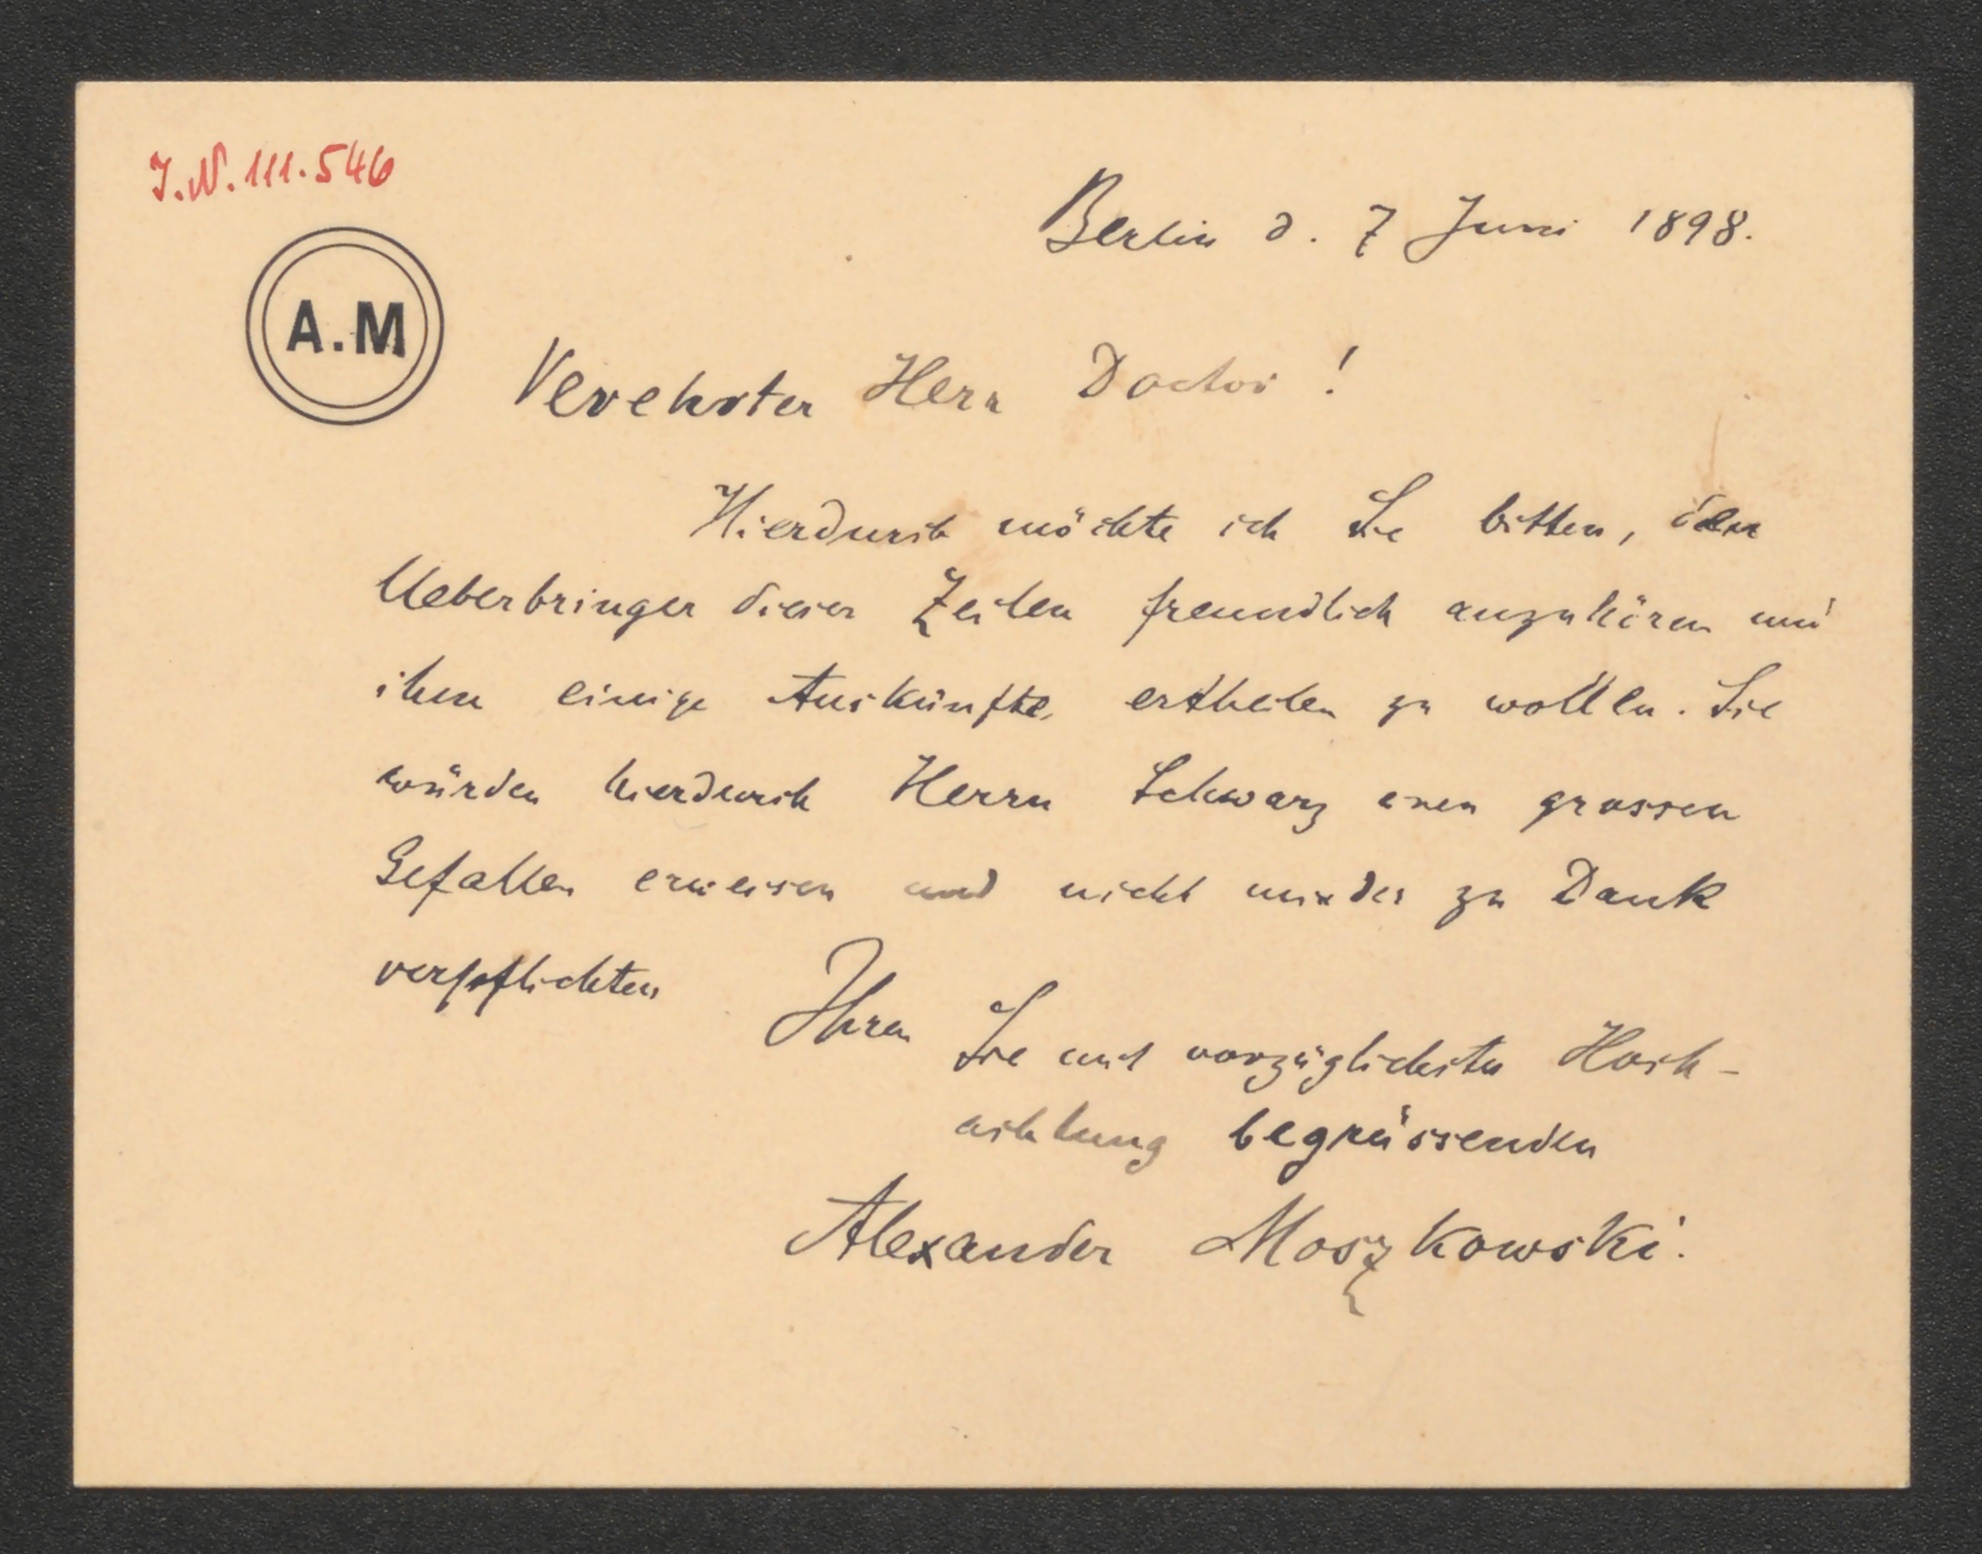 J.N. 111.546
Berlin d. 7 Juni 1898.
A.M
Verehrter Herr Doctor!
Hierdurch möchte ich Sie bitten, den
Ueberbringer dieser Zeilen freundlich anzuhören und
ihm einige Auskünfte ertheilen zu wollen. Sie
würden hierdurch Herrn Schwarz einen grossen
Gefallen erweisen und nicht minder zu Dank
verpflichten
Ihren
Sie mit vorzüglichster Hoch-
achtung begrüssenden
Alexander Moszkowski.